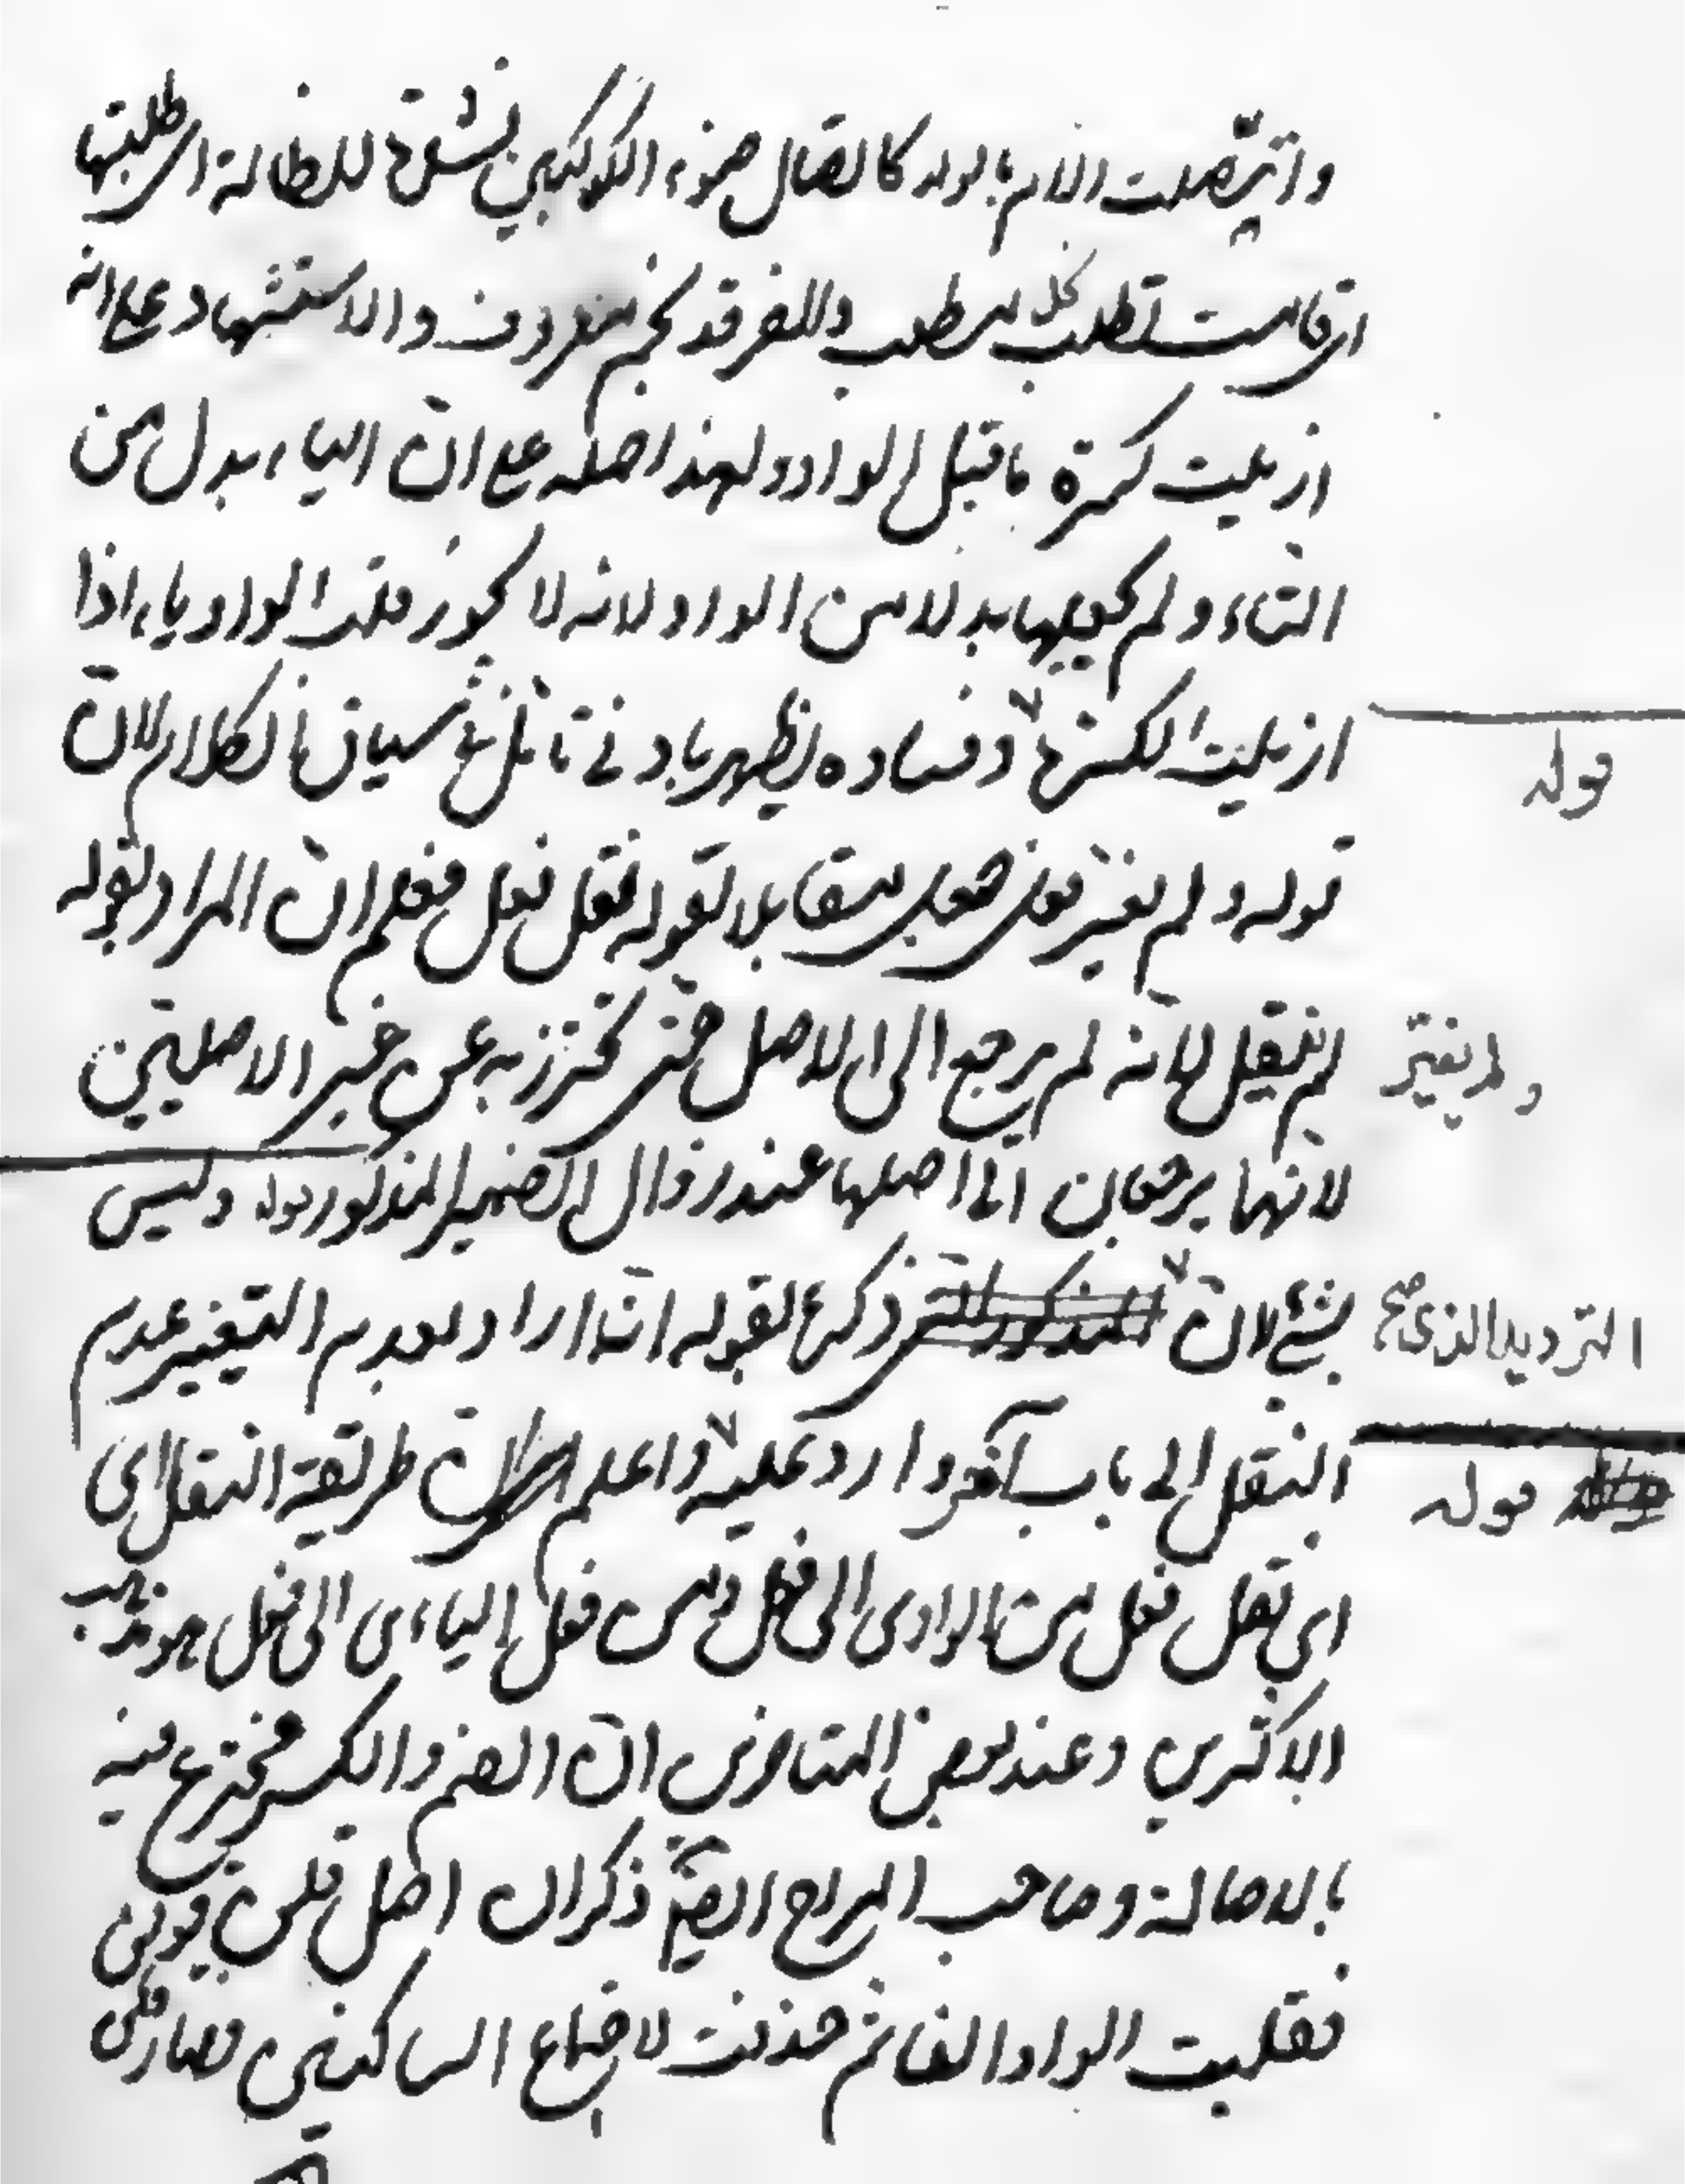 واتصلت الام بالولد كاتصال ضوء الكوكبين نشدت للظالة اى طلبتها
اى قامت تطلب كل مطلب وللفرقد نجم معروف والاستشهاد على انه
ازيلت كسرة ما قبل الواو ولهذا اصله على ان الياء بدل من
التاء ولم يجعلها بدلا من الواو لانه لا يجوز قلب الواو ياء اذا
ازيلت الكسرة وفساده يظهر بادنى تأمل فى سياق الكلام لان
قوله
قوله ولم يغير فعل جعل مقابلا لقوله نقل فعل فعلم ان المراد بقوله
ولم يغير
لم ينقل لانه لم يرجع الى الاصل حتى يحترز به عن غير الاصليين
لانهما يرجعان الى اصلهما عند زوال الضمير المذكور قوله وليس
بشئ لان ذكره لقوله ان اراد بعدم التغيير عدم
الترديد الذى صح
النقل الى باب آخر وارد عليه واعلم ان طريقة النقل اى
قوله
اى نقل فعل من الواوى الى فعل ومن فعل اليائى الى فعل هو مذهب
الاكثرين وعند بعض المتاخرين ان الضم والكسر مخترع فيه
بالاصالة وصاحب المراح ايضا ذكر ان اصل قلن قولن
فقلبت الواو الفا ثم حذفت لاجتماع الساكنين فصار قلن